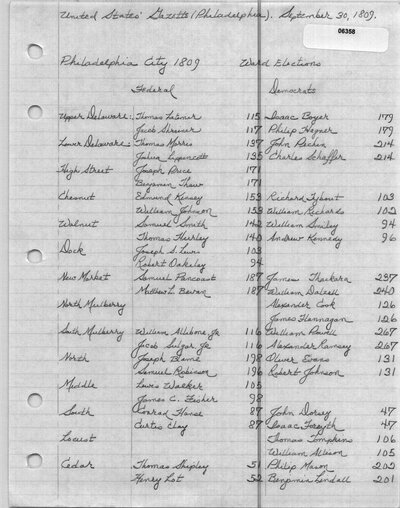 United States' Gazette (Philadelphia). September 30, 1809.
06358
Philadelphia City 1809 Ward Elections
Federal Democrats
Upper Delaware: Thomas Latimer 115 Isaac Boyer 179
Jacob Shriner 117 Philip Hagner 179
Lower Delaware: Thomas Morris 137 John Packer 214
Joshua Lippencott 135 Charles Schaffer 214
High Street Joseph Price 171
Benjamin Thaw 171
Chesnut Edmund Kinsey 153 Richard Tybout 103
William Johnson 153 William Richards 102
Walnut Samuel Smith 142 William Smiley 94
Thomas 140 Andrew Kennedy 96
Dock Joseph S. Lewis 103
Robert Oakeley 94
New Market Samuel Pancoast 187 James Thackara 237
Matthew L. Bevan 187 William Dalzell 240
North Mulberry Alexander Cook 126
James Flannagan 126
South Mulberry William Allibone, Jr. 116 William 267
Jacob Sulger Jr 116 Alexander Ramsey 267
North Joseph 198 Oliver Evans 131
Samuel Robinson 196 Robert Johnson 131
Middle Lewis Walker 105
James C. Fisher 98
South Conrad Hanse 87 John Dorsey 47
Curtis Clay 87 Isaac Forsyth 47
Locust Thomas Tompkins 106
William 105
Cedar Thomas Shipley 51 Philip Mason 202
Henry Lot 52 Benjamin Lendall 201